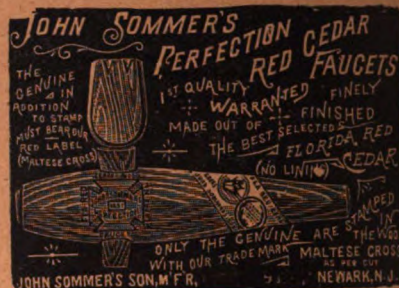 JOHN SOMMER'S
PERFECTION RED CEDAR
FAUCETS
THE
GENUINE
IN
ADDITION
TO STAMP
MUST BEAR OUR
RED LABEL
(MALTESE CROSS)
1ST QUALITY
WARRANTED FINELY
FINISHED
MADE OUT OF
THE BEST SELECTED
FLORIDA RED
CEDAR
(NO LINING)
ONLY THE GENUINE ARE STAMPED
IN
THE WOOD
WITH OUR TRADE MARK MALTESE CROSS
AS PER CUT
JOHN SOMMER'S SON, M'F'R, NEWARK, N.J.